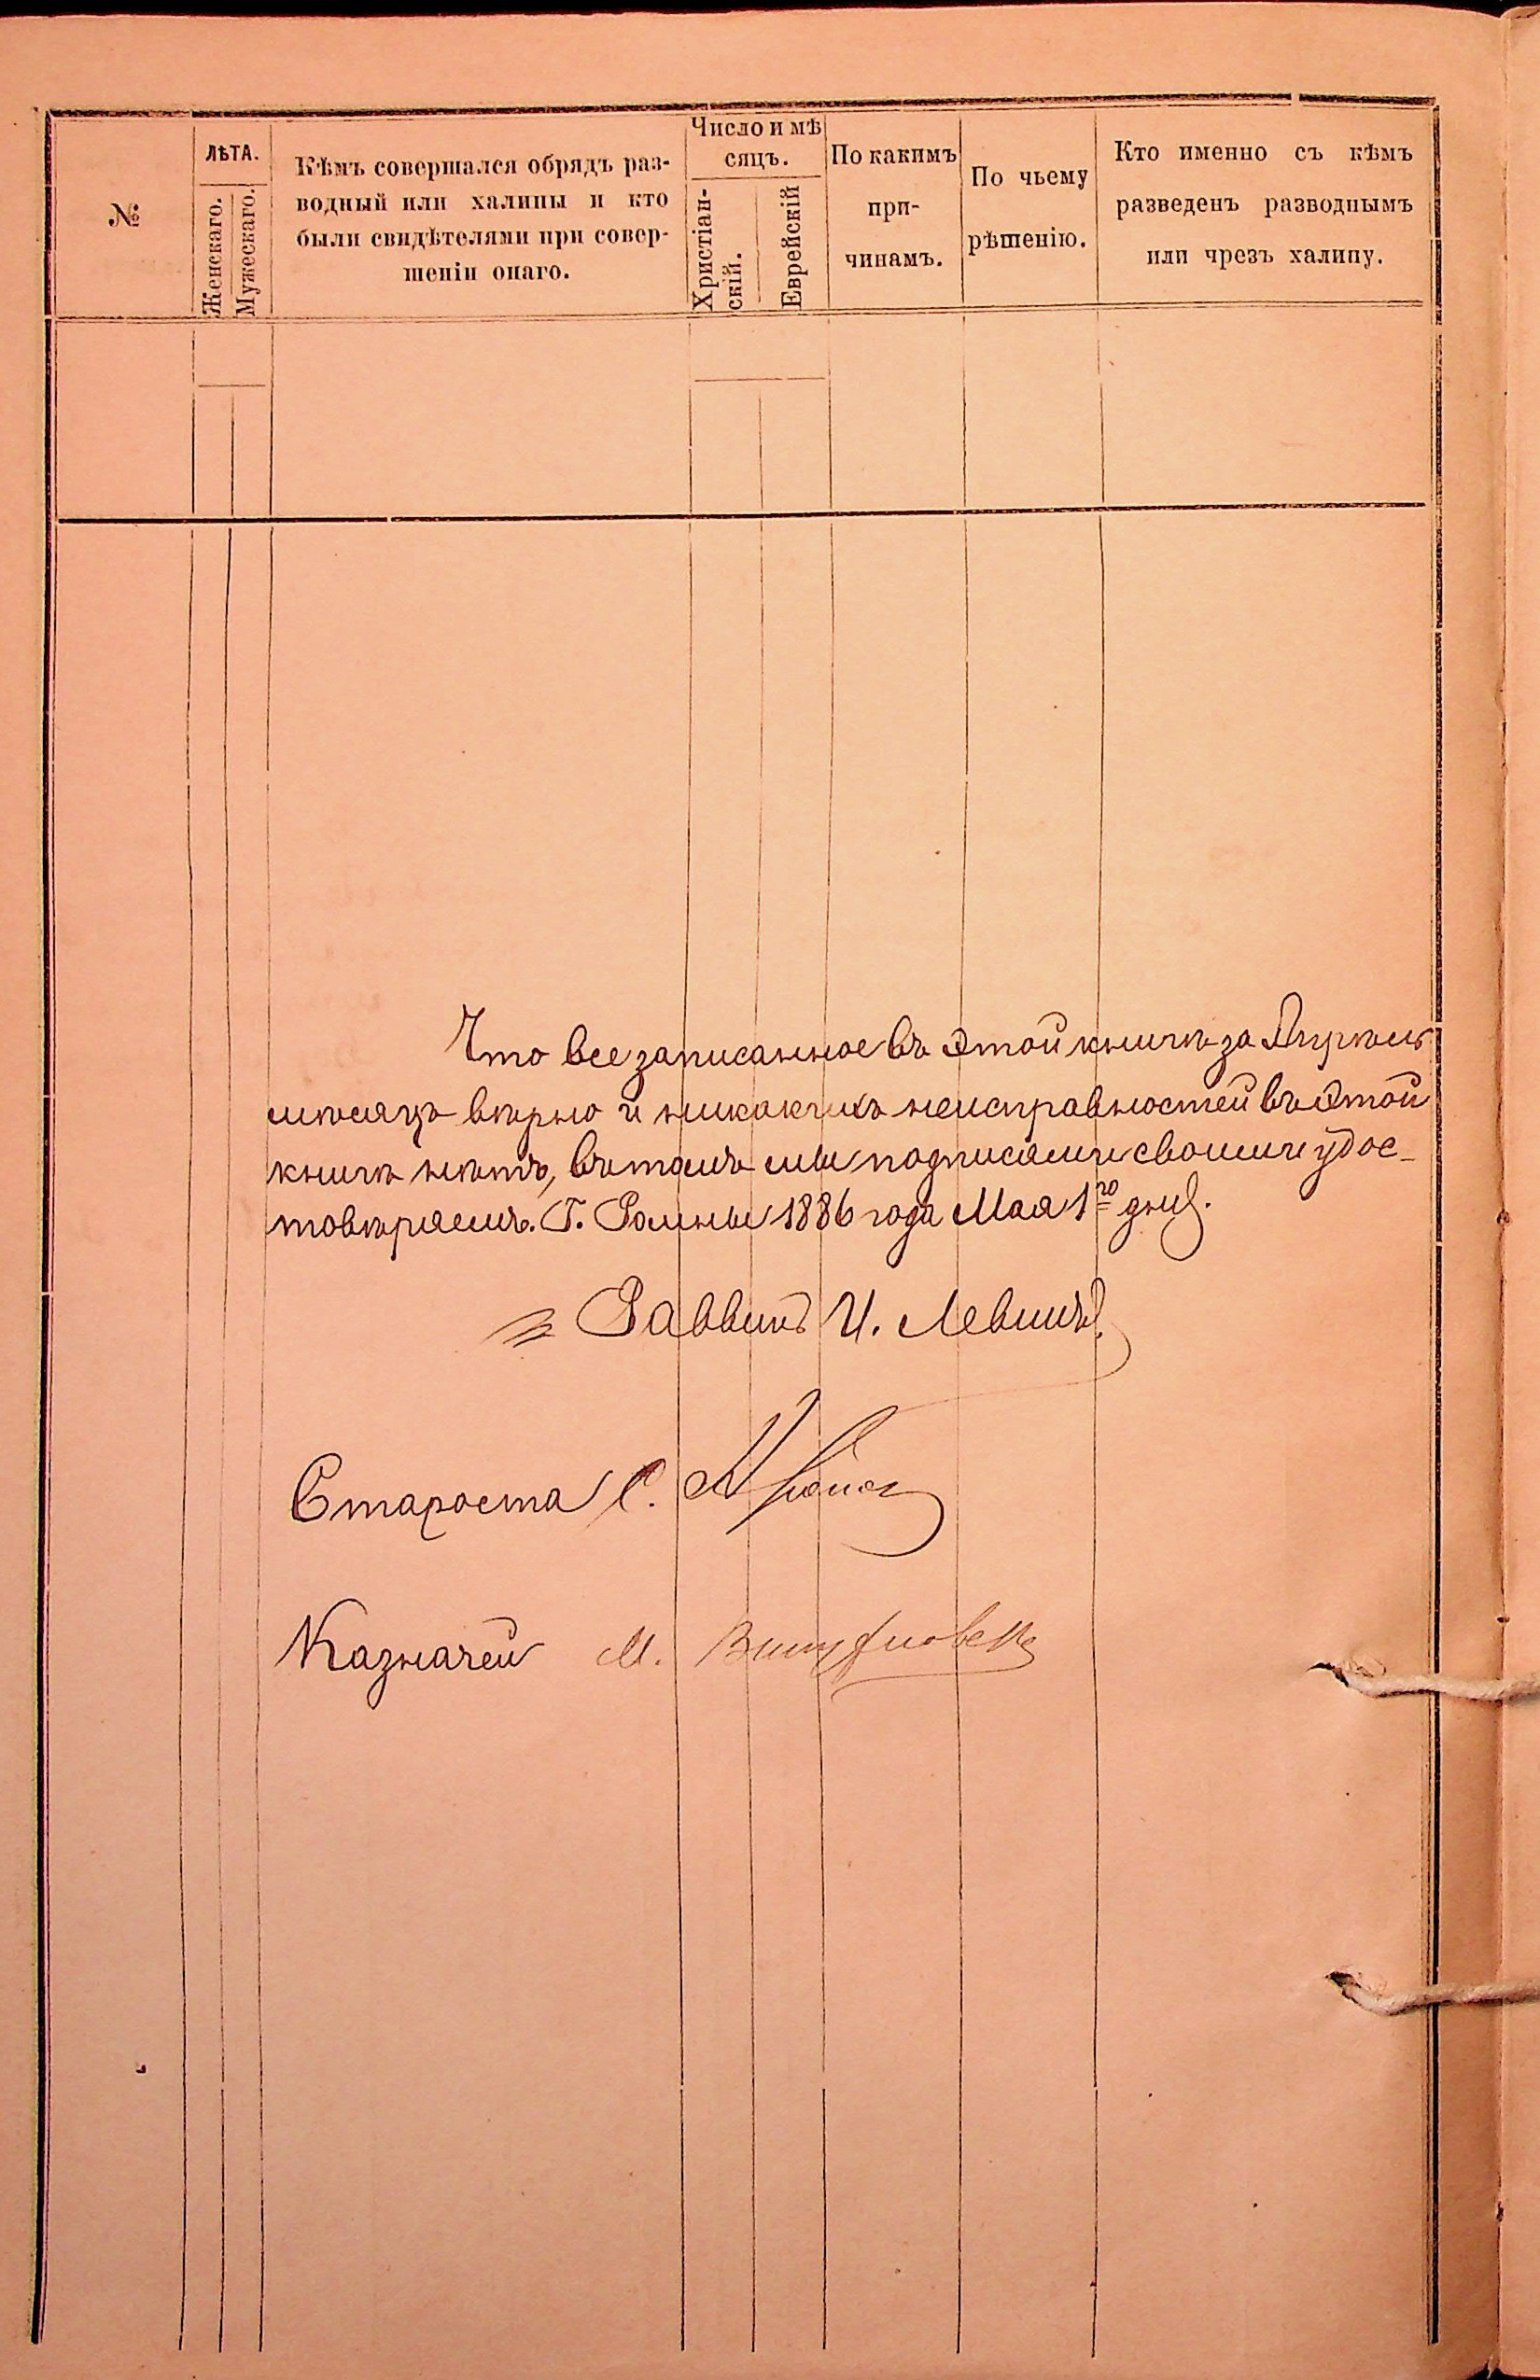 №
ЛѢТА.
Женскаго.
Мужескаго.
Кѣмъ совершался обрядъ раз-
водный или халицы и кто
были свидѣтелями при совер-
шеніи онаго.
Число и мѣ
сяцъ.
Христіан-
скій.
Еврейскій
По какимъ
при-
чинамъ.
По чьему
рѣшенію.
Кто именно съ кѣмъ
разведенъ разводнымъ
или чрезъ халицу.
Что все записанное въ этой книгѣ за Апрѣль
мѣсяцъ вѣрно и никакихъ неисправностей въ этой
книгѣ нѣтъ, въ томъ мы подписями своими удос-
товѣряемъ. Г. Ромны 1886 года Мая 1го дня.
Раввинъ И. Левинъ.
Староста С.
Казначей М.